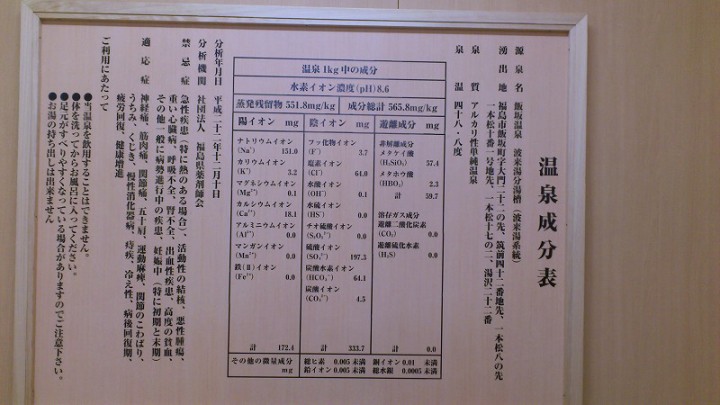 温泉成分表
源泉名 飯坂温泉 波来湯分湯槽(波来湯系統)
湧出地 福島市飯坂町字大門二十二の先、筑前四十二番地先、一本松八の先
一本松十番一号地先、一本松十七の二、湯沢二十二番
泉質 アルカリ性単純温泉
泉温 四十八・八度
温泉1kg中の成分
水素イオン濃度(pH)8.6
蒸発残留物 551.8mg/kg 成分総計 565.8mg/kg
陽イオン mg
ナトリウムイオン
(Na⁺) 151.0
カリウムイオン
(K⁺) 3.2
マグネシウムイオン
(Mg²⁺) 0.1
カルシウムイオン
(Ca²⁺) 18.1
アルミニウムイオン
(Al³⁺) 0.0
マンガンイオン
(Mn²⁺) 0.0
鉄(Ⅱ)イオン
(Fe²⁺) 0.0
計 172.4
陰イオン mg
フッ化物イオン
(F⁻) 3.7
塩素イオン
(Cl⁻) 64.0
水酸イオン
(OH⁻) 0.1
水硫イオン
(HS⁻) 0.0
チオ硫酸イオン
(S₂O₃²⁻) 0.0
硫酸イオン
(SO₄²⁻) 197.3
炭酸水素イオン
(HCO₃⁻) 64.1
炭酸イオン
(CO₃²⁻) 4.5
計 333.7
遊離成分 mg
非解離成分
メタケイ酸
(H₂SiO₃) 57.4
メタホウ酸
(HBO₂) 2.3
計 59.7
溶存ガス成分
遊離二酸化炭素
(CO₂) 0.0
遊離硫化水素
(H₂S) 0.0
計 0.0
その他の微量成分
mg
総ヒ素 0.005 未満
鉛イオン 0.005 未満
銅イオン 0.01 未満
総水銀 0.0005 未満
分析年月日 平成二十二年十二月十日
分析機関 社団法人 福島県薬剤師会
禁忌症 急性疾患(特に熱のある場合)、活動性の結核、悪性腫瘍、
重い心臓病、呼吸不全、腎不全、出血性疾患、高度の貧血、
その他一般に病勢進行中の疾患、妊娠中(特に初期と末期)
適応症 神経痛、筋肉痛、関節痛、五十肩、運動麻痺、関節のこわばり、
うちみ、くじき、慢性消化器病、痔疾、冷え性、病後回復期、
疲労回復、健康増進
ご利用にあたって
●当温泉を飲用することはできません。
●体を洗ってからお風呂に入ってください。
●足元がすべりやすくなっている場合がありますのでご注意下さい。
●お湯の持ち出しは出来ません